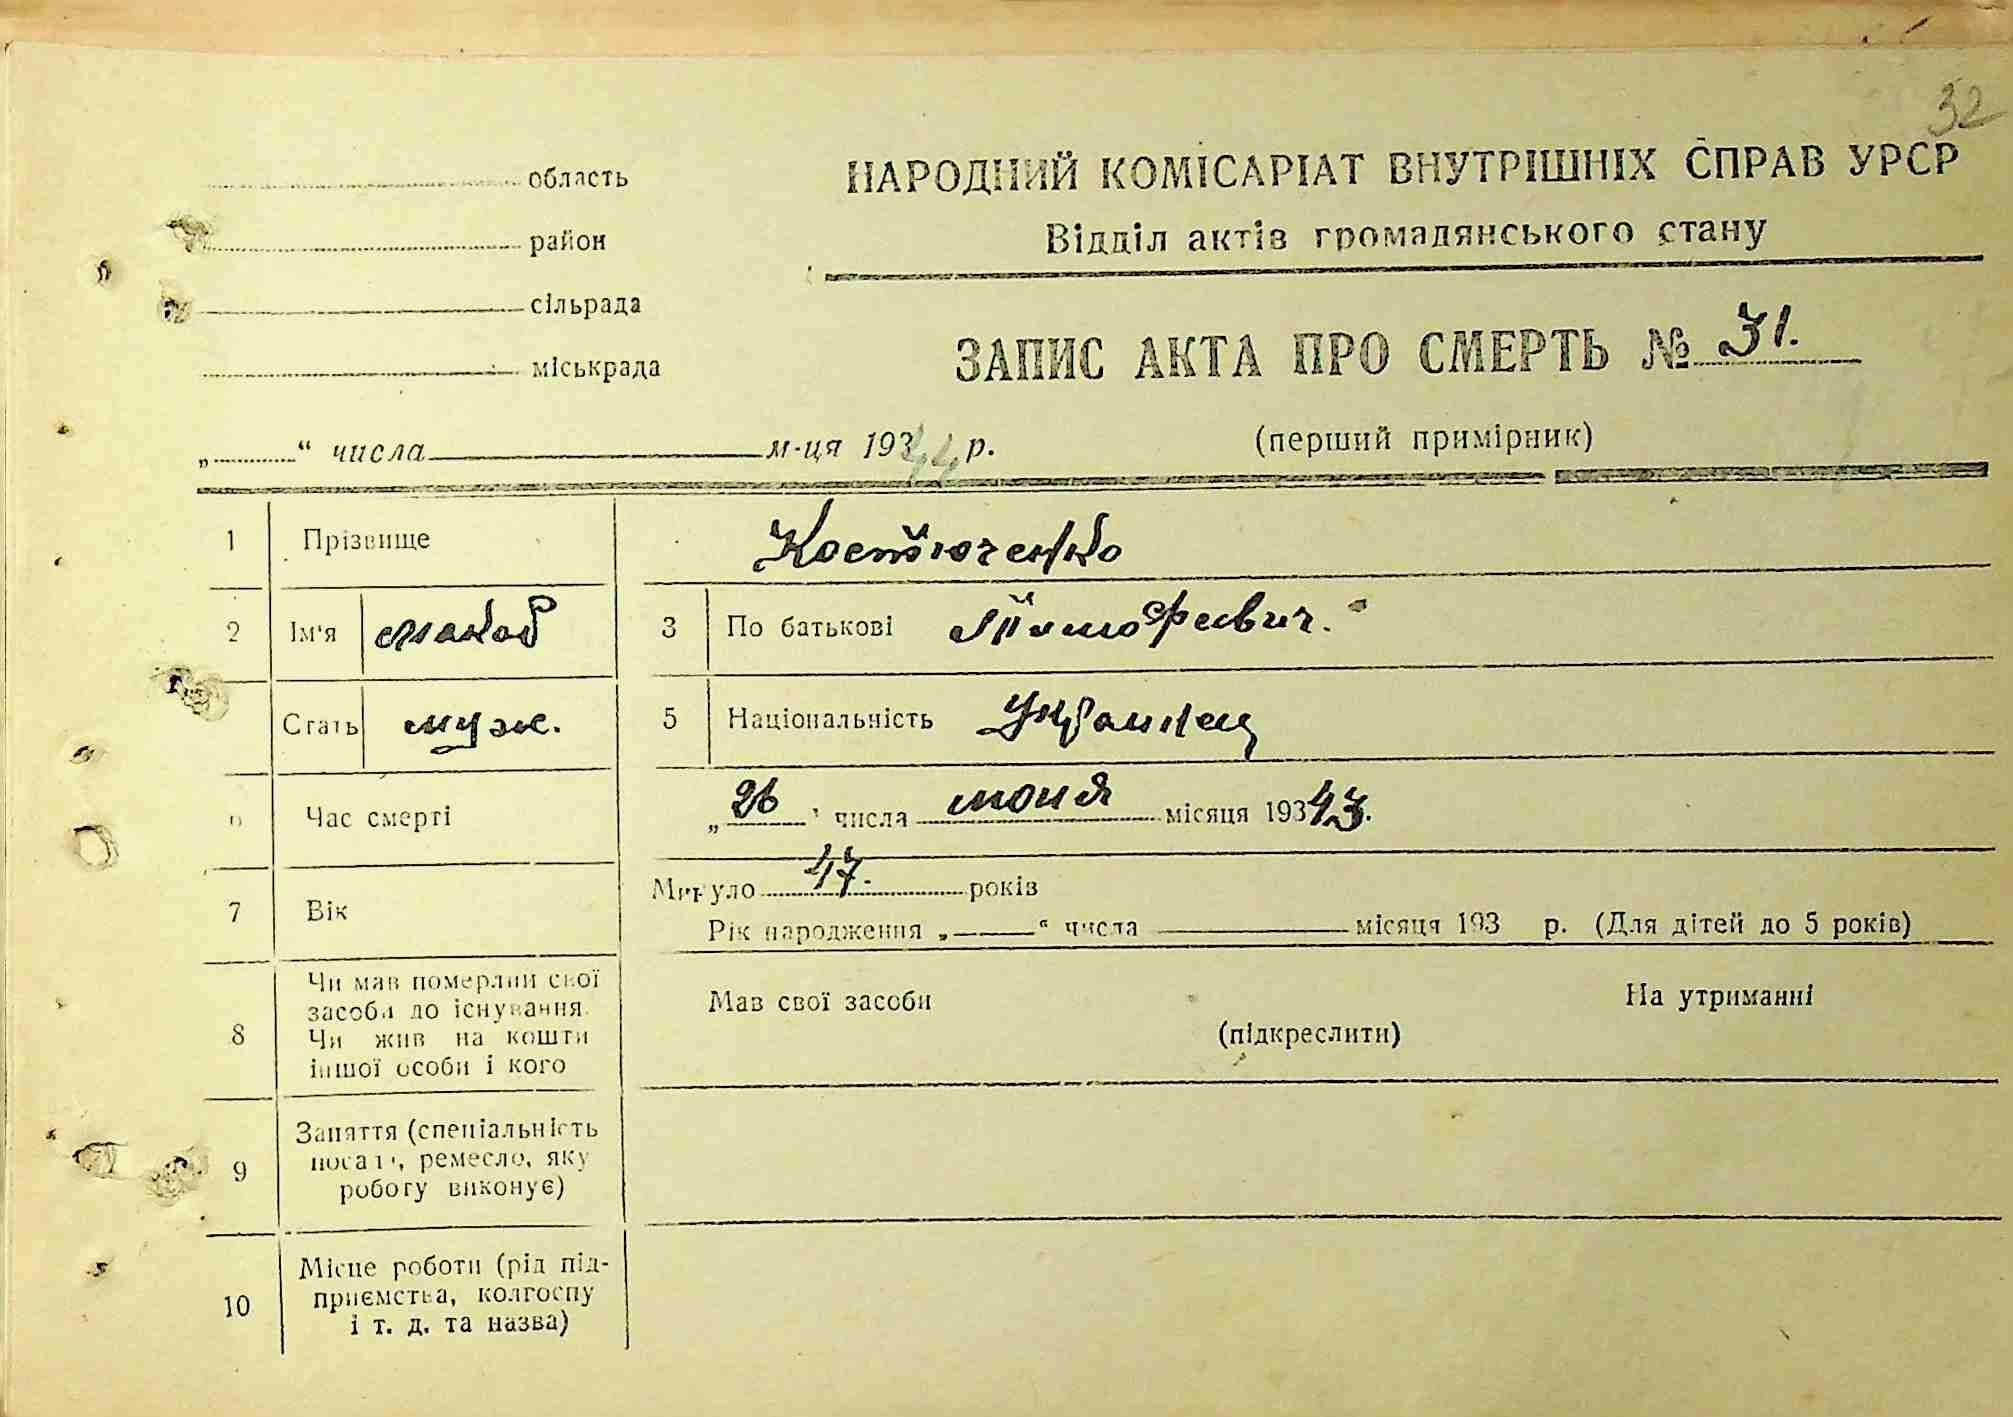 32
область
НАРОДНИЙ КОМІСАРІАТ ВНУТРІШНІХ СПРАВ УРСР
район
Відділ актів громадянського стану
сільрада
ЗАПИС АКТА ПРО СМЕРТЬ № 31.
міськрада
„ “ числа м-ця 193 44 р.
(перший примірник)
1 Прізвище Костюченко
2 Ім'я Макар 3 По батькові Тимофеевич.
Стать муж. 5 Національність Украинец
6 Час смерті „ 26 " числа июня місяця 193 43.
7 Вік Минуло 47. років
Рік народження „ “ числа місяця 193 р. (Для дітей до 5 років)
8 Чи мав померлий свої
засоби до існування.
Чи жив на кошти
іншої особи і кого
Мав свої засоби
(підкреслити)
На утриманні
9 Заняття (спеціальність
посада, ремесло, яку
роботу виконує)
10 Місце роботи (рід під-
приємства, колгоспу
і т. д. та назва)